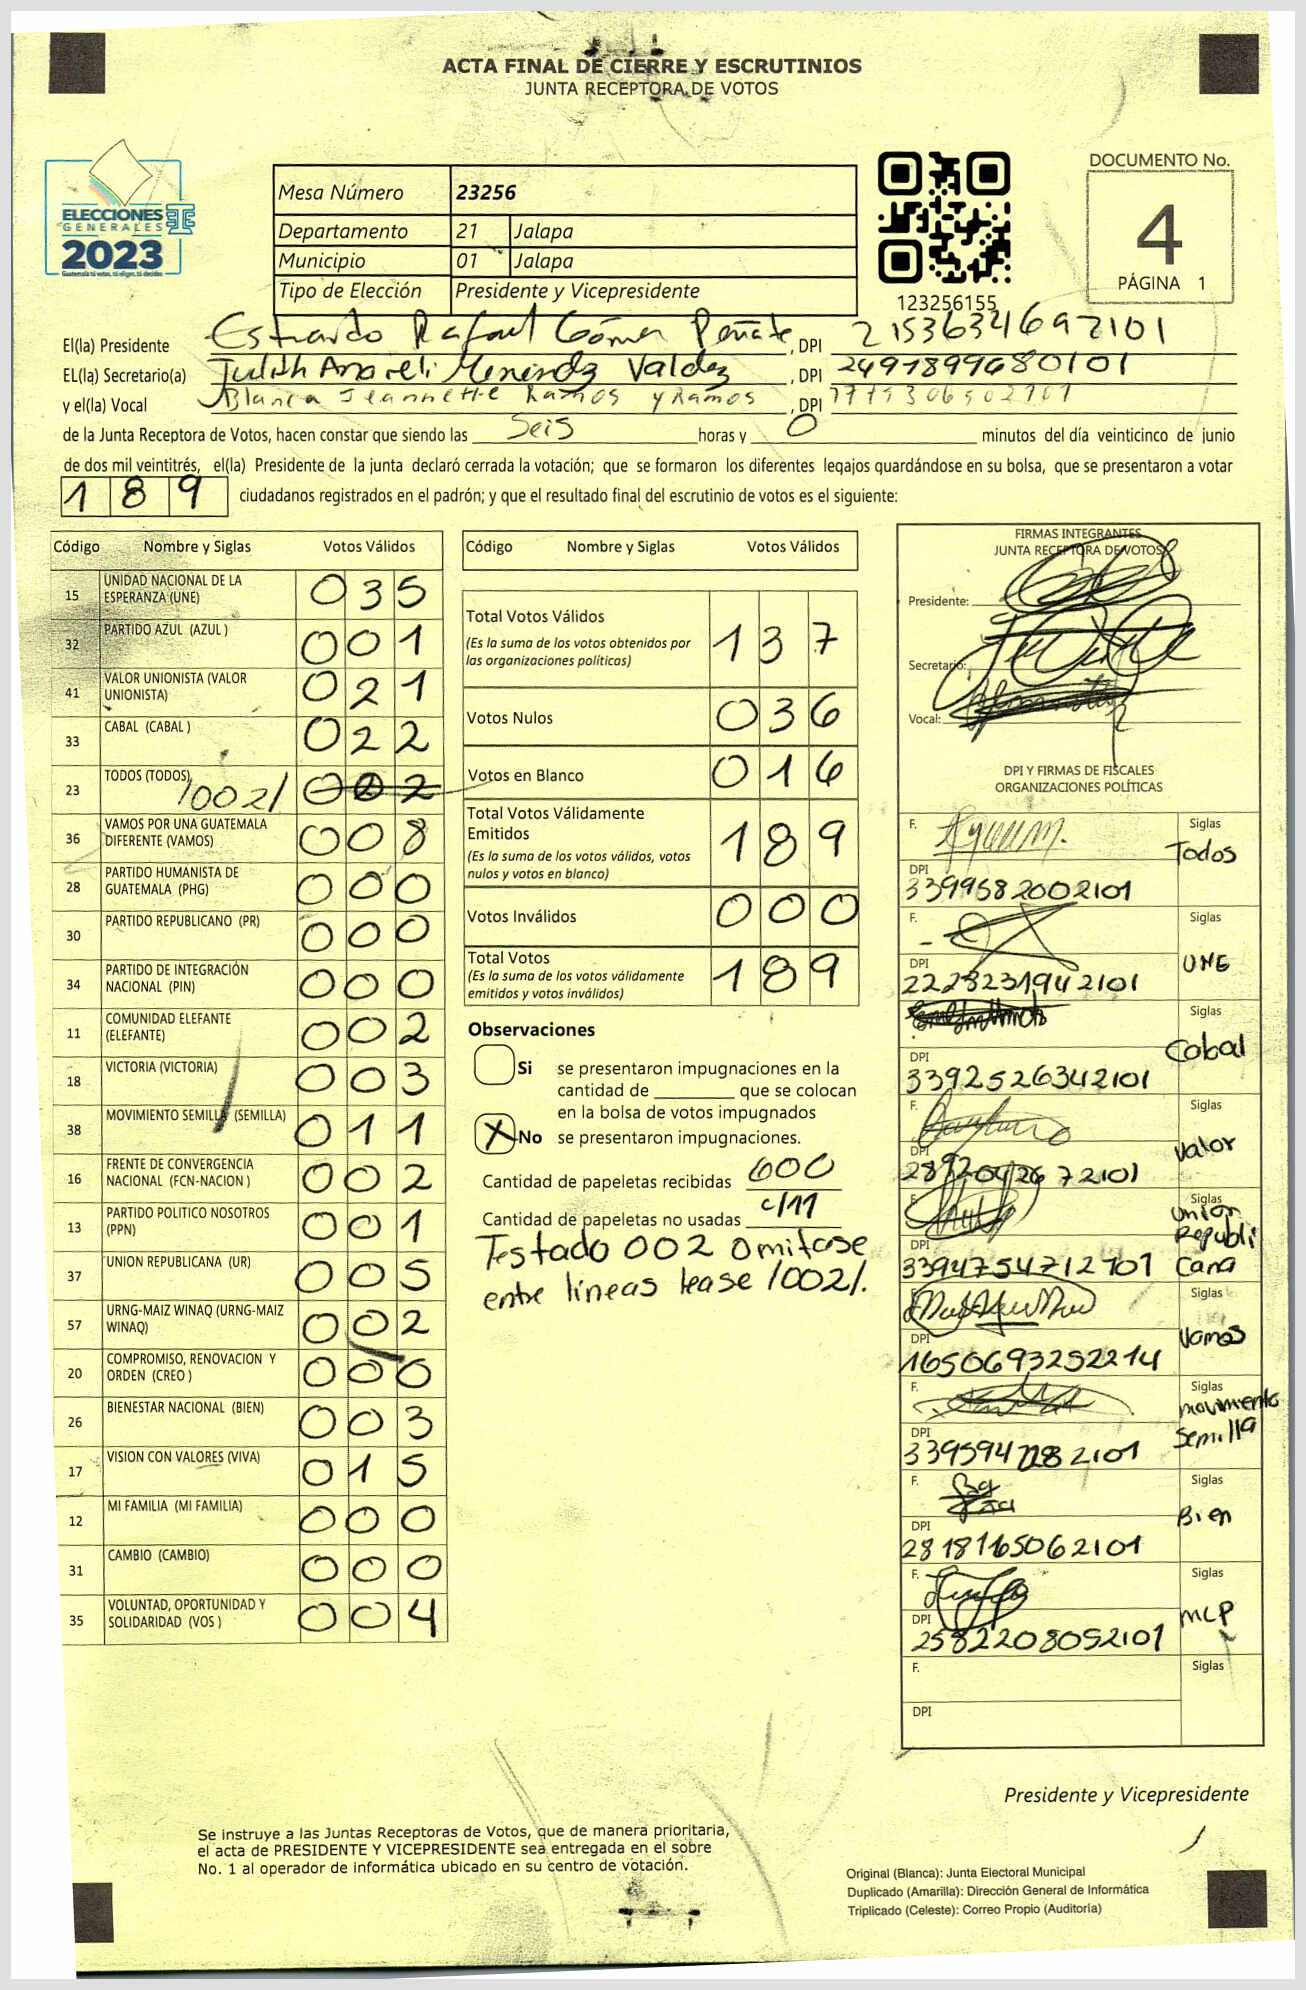 ACTA FINAL DE CIERRE Y ESCRUTINIOS
JUNTA RECEPTORA DE VOTOS
ELECCIONES
GENERALES
2023
Guatemala tú votas, tú eliges, tú decides
Mesa Número 23256
Departamento 21 Jalapa
Municipio 01 Jalapa
Tipo de Elección Presidente y Vicepresidente
123256155
DOCUMENTO No.
4
PÁGINA 1
El(la) Presidente Estuardo Rafael Gómez Peñate, DPI 2153634692101
EL(la) Secretario(a) Judith Anareli Menendz Valdez, DPI 2491899680101
y el(la) Vocal Blanca Jeannette Ramos y Ramos, DPI
de la Junta Receptora de Votos, hacen constar que siendo las Seis horas y 0 minutos del día veinticinco de junio
de dos mil veintitrés, el(la) Presidente de la junta declaró cerrada la votación; que se formaron los diferentes legajos quardándose en su bolsa, que se presentaron a votar
189 ciudadanos registrados en el padrón; y que el resultado final del escrutinio de votos es el siguiente:
Código Nombre y Siglas Votos Válidos
15 UNIDAD NACIONAL DE LA ESPERANZA (UNE) 035
32 PARTIDO AZUL (AZUL ) 001
41 VALOR UNIONISTA (VALOR UNIONISTA) 021
33 CABAL (CABAL ) 022
23 TODOS (TODOS) /002/ 002
36 VAMOS POR UNA GUATEMALA DIFERENTE (VAMOS) 008
28 PARTIDO HUMANISTA DE GUATEMALA (PHG) 000
30 PARTIDO REPUBLICANO (PR) 000
34 PARTIDO DE INTEGRACIÓN NACIONAL (PIN) 000
11 COMUNIDAD ELEFANTE (ELEFANTE) 002
18 VICTORIA (VICTORIA) 003
38 MOVIMIENTO SEMILLA (SEMILLA) 011
16 FRENTE DE CONVERGENCIA NACIONAL (FCN-NACION ) 002
13 PARTIDO POLITICO NOSOTROS (PPN) 001
37 UNION REPUBLICANA (UR) 005
57 URNG-MAIZ WINAQ (URNG-MAIZ WINAQ) 002
20 COMPROMISO, RENOVACION Y ORDEN (CREO ) 000
26 BIENESTAR NACIONAL (BIEN) 003
17 VISION CON VALORES (VIVA) 015
12 MI FAMILIA (MI FAMILIA) 000
31 CAMBIO (CAMBIO) 000
35 VOLUNTAD, OPORTUNIDAD Y SOLIDARIDAD (VOS ) 004
Código Nombre y Siglas Votos Válidos
Total Votos Válidos 137
(Es la suma de los votos obtenidos por
las organizaciones políticas)
Votos Nulos 036
Votos en Blanco 016
Total Votos Válidamente
Emitidos 189
(Es la suma de los votos válidos, votos
nulos y votos en blanco)
Votos Inválidos 000
Total Votos 189
(Es la suma de los votos válidamente
emitidos y votos inválidos)
Observaciones
Si se presentaron impugnaciones en la
cantidad de ________ que se colocan
en la bolsa de votos impugnados
X No se presentaron impugnaciones.
Cantidad de papeletas recibidas 600
Cantidad de papeletas no usadas
Testado 002 omitase
entre líneas lease /002/.
FIRMAS INTEGRANTES
JUNTA RECEPTORA DE VOTOS
Presidente:
Secretario:
Vocal:
DPI Y FIRMAS DE FISCALES
ORGANIZACIONES POLÍTICAS
F. Siglas
Todos
DPI
3399582002101
F. Siglas
UNE
DPI
2228231942101
Siglas
Cabal
DPI
3392526342101
F. Siglas
Valor
DPI
2892042672101
F. Siglas
Union
Republi
cana
DPI
3394754712101
Siglas
Vamos
DPI
1650693252214
F. Siglas
movimiento
Semilla
DPI
F. Siglas
Bien
DPI
2818165062101
F. Siglas
MLP
DPI
2582208052101
F. Siglas
DPI
Presidente y Vicepresidente
Se instruye a las Juntas Receptoras de Votos, que de manera prioritaria,
el acta de PRESIDENTE Y VICEPRESIDENTE sea entregada en el sobre
No. 1 al operador de informática ubicado en su centro de votación.
Original (Blanca): Junta Electoral Municipal
Duplicado (Amarilla): Dirección General de Informática
Triplicado (Celeste): Correo Propio (Auditoría)